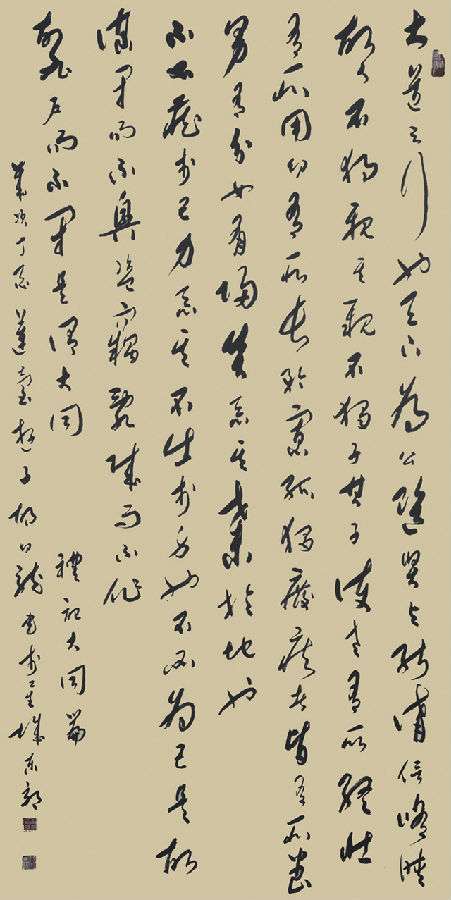 大道之行也天下為公選賢与能講信修睦
故人不獨親其親不獨子其子使老有所終壯
有所用幼有所長矜寡孤獨廢疾者皆有所養
男有分女有歸貨惡其棄於地也
不必藏於己力惡其不出於身也不必為己是故
謀閉而不興盗竊亂賊而不作
故外户而不閉是謂大同
禮記大同篇
歲次丁亥
書於羊城東郊